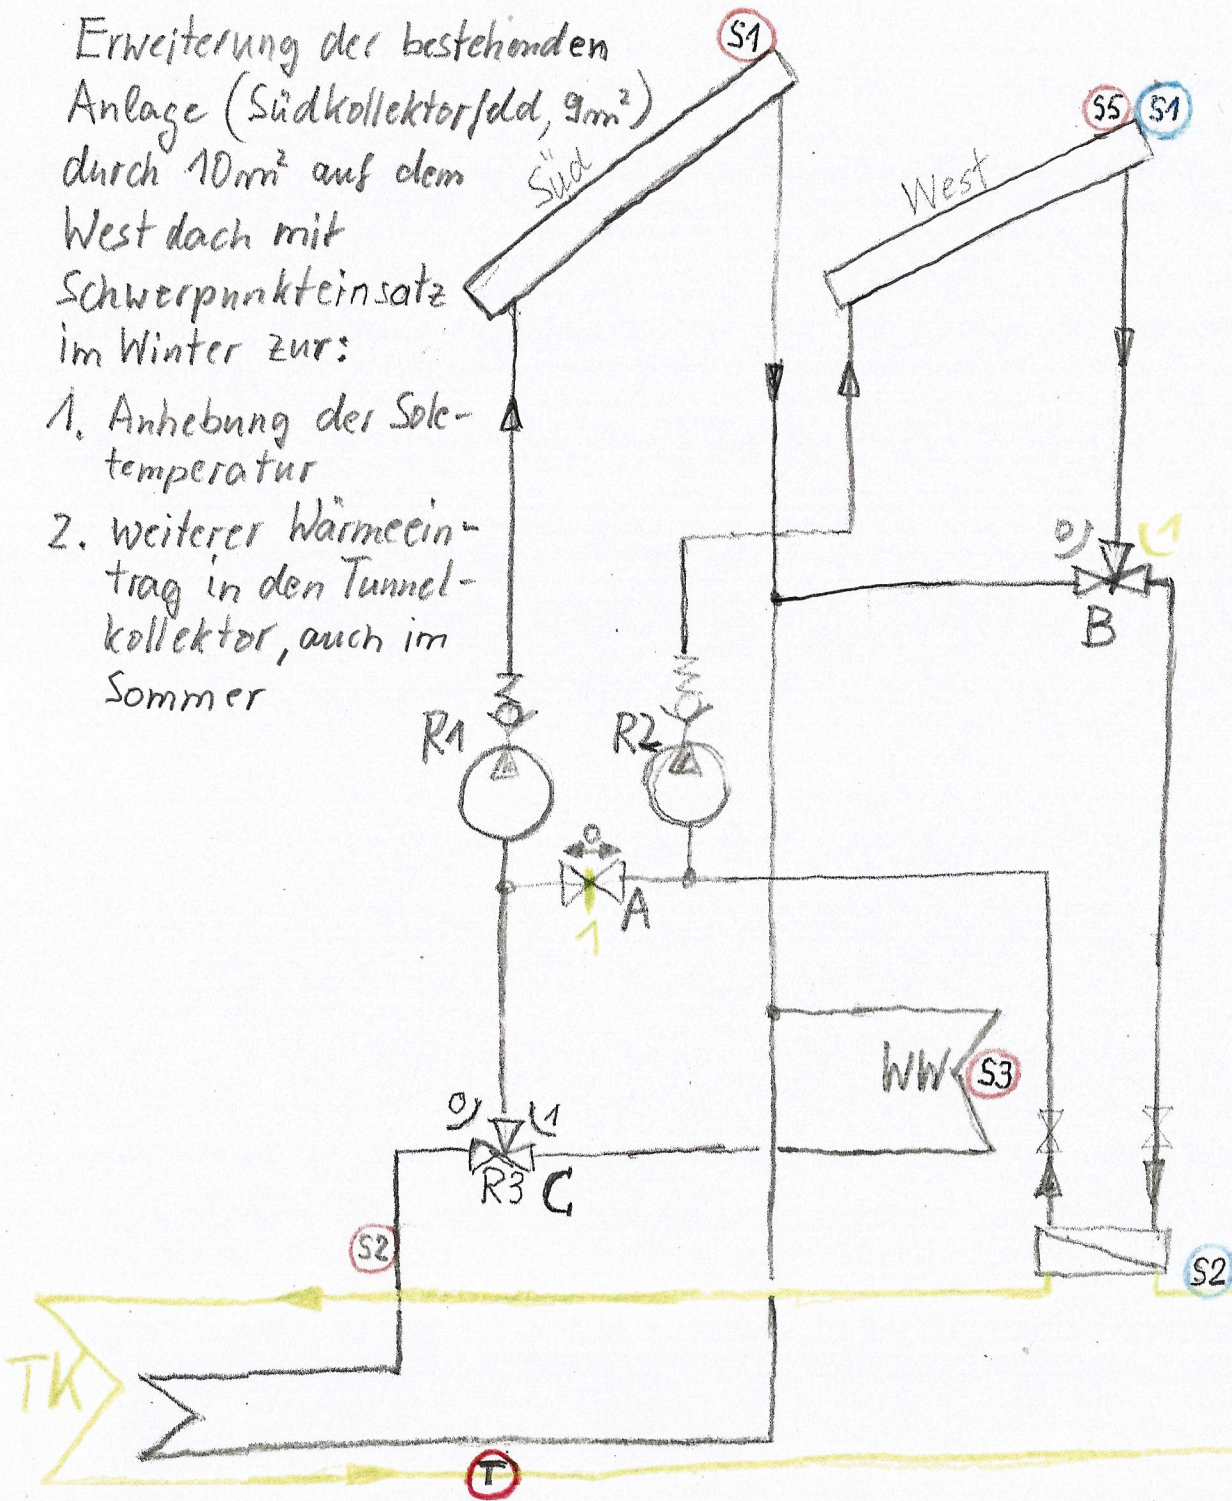 Erweiterung der bestehenden
Anlage (Südkollektorfeld, 9m²)
durch 10m² auf dem
Westdach mit
Schwerpunkteinsatz
im Winter zur:
1. Anhebung der Sole-
temperatur
2. weiterer Wärmeein-
trag in den Tunnel-
kollektor, auch im
Sommer
S1
Süd
S5 S1
West
0 1
B
R1 R2
0
A
1
WW S3
0 1
R3 C
S2
S2
TK
T